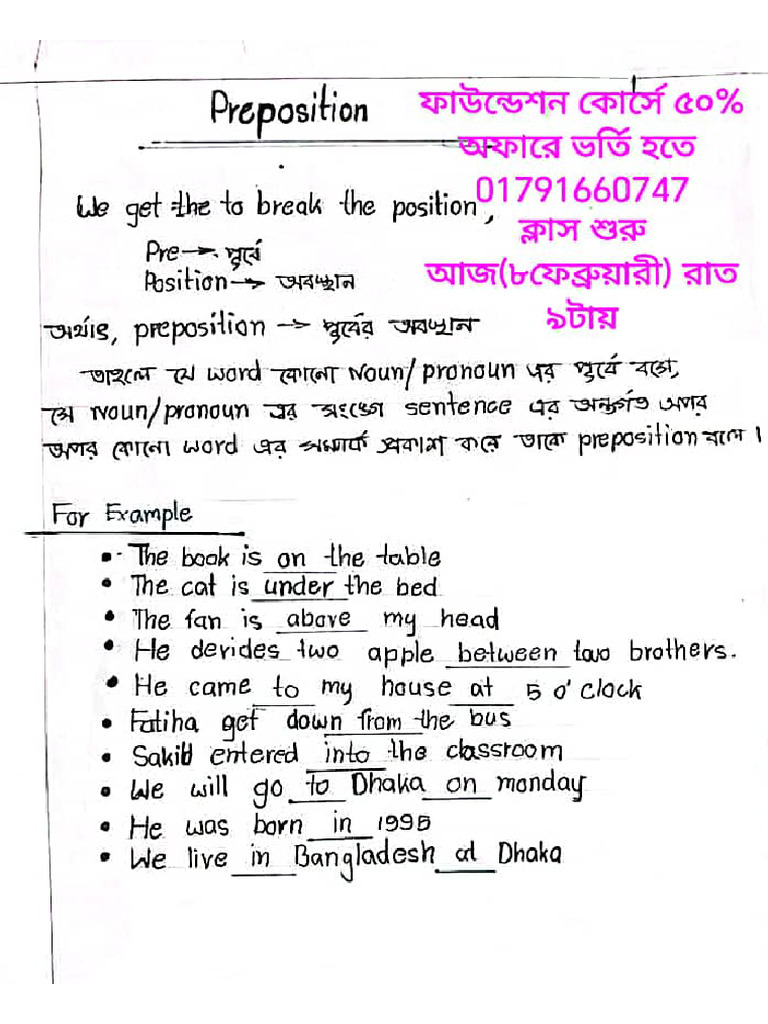 Preposition
ফাউন্ডেশন কোর্সে ৫০%
অফারে ভর্তি হতে
01791660747
ক্লাস শুরু
আজ(৮ফেব্রুয়ারী) রাত
৯টায়
We get the to break the position,
Pre → পূর্বে
Position → অবস্থান
অর্থাৎ, preposition → পূর্বের অবস্থান
তাহলে যে word কোনো Noun/pronoun এর পূর্বে বসে,
সে Noun/pronoun এর সংঙ্গে sentence এর অন্তর্গত অপর
অপর কোনো word এর সম্পর্ক প্রকাশ করে তাকে preposition বলে।
For Example
• The book is on the table
• The cat is under the bed
• The fan is above my head
• He derides two apple between two brothers.
• He came to my house at 5 o' clock
• Fatiha get down from the bus
• Sakib entered into the classroom
• We will go to Dhaka on monday
• He was born in 1995
• We live in Bangladesh at Dhaka